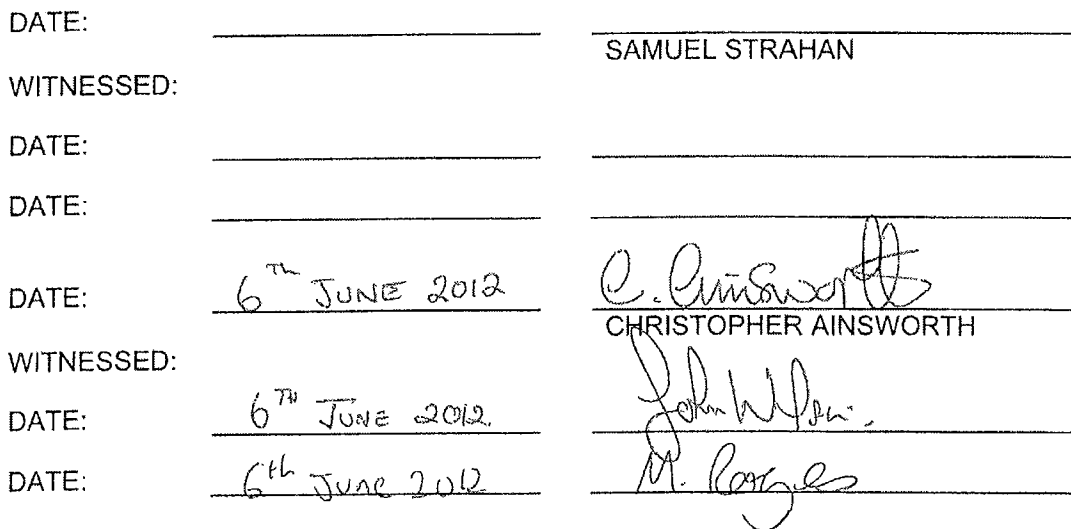 DATE:
SAMUEL STRAHAN
WITNESSED:
DATE:
DATE:
DATE: 6Th JUNE 2012 C. Ainsworth
CHRISTOPHER AINSWORTH
WITNESSED:
DATE: 6TH JUNE 2012. John
DATE: 6th June 2012 M.